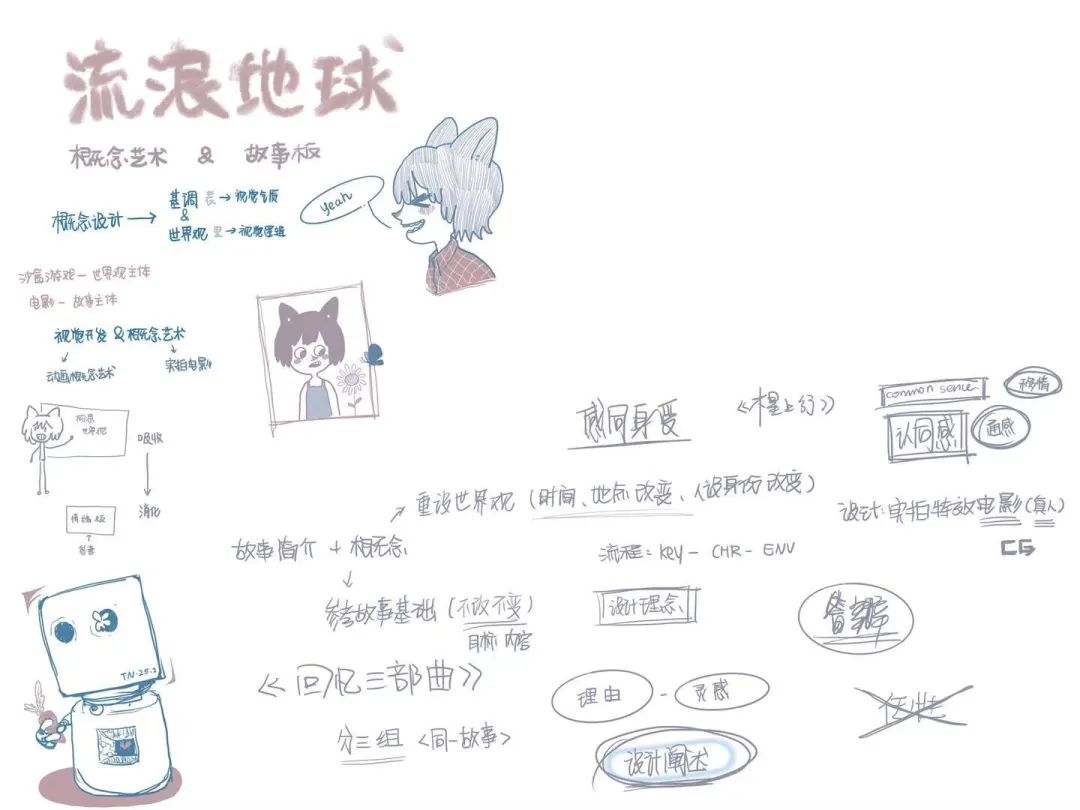 流浪地球
概念艺术 & 故事板
概念设计 → 基调 表 → 视觉气质
&
世界观 里 → 视觉逻辑
yeah
沙盒游戏 - 世界观主体
电影 - 故事主体
视觉开发 & 概念艺术
动画概念艺术
实拍电影
构思
世界观
吸收
消化
情绪板
TN-25.2
感同身受
《木星上行》
common sence
移情
认同感
通感
重设世界观 (时间、地点改变、人设身份改变)
设计:实拍特效电影(真人)
CG
故事简介 + 概念
流程: Key - CHR - ENV
参考故事基础 (不改不变)
目标 内容
设计理念
《回忆三部曲》
理由 - 灵感
分三组 <同一故事>
设计阐述